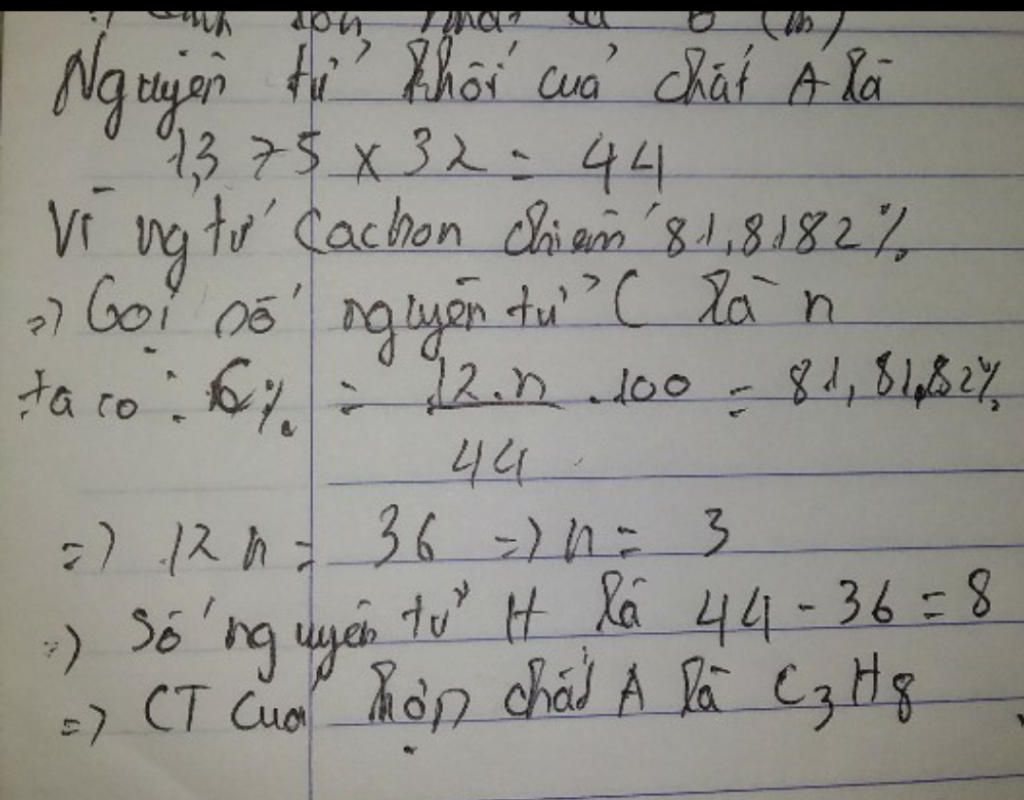 Nguyên tử khối của chất A là
1,375 x 32 = 44
Vì ng tử Cacbon chiếm 81,8182%
=> Gọi số nguyên tử C là n
ta có: C% = 12.n .100 = 81,8182%
44
=> 12n = 36 => n = 3
=> Số nguyên tử H là 44 - 36 = 8
=> CT của hợp chất A là C3H8